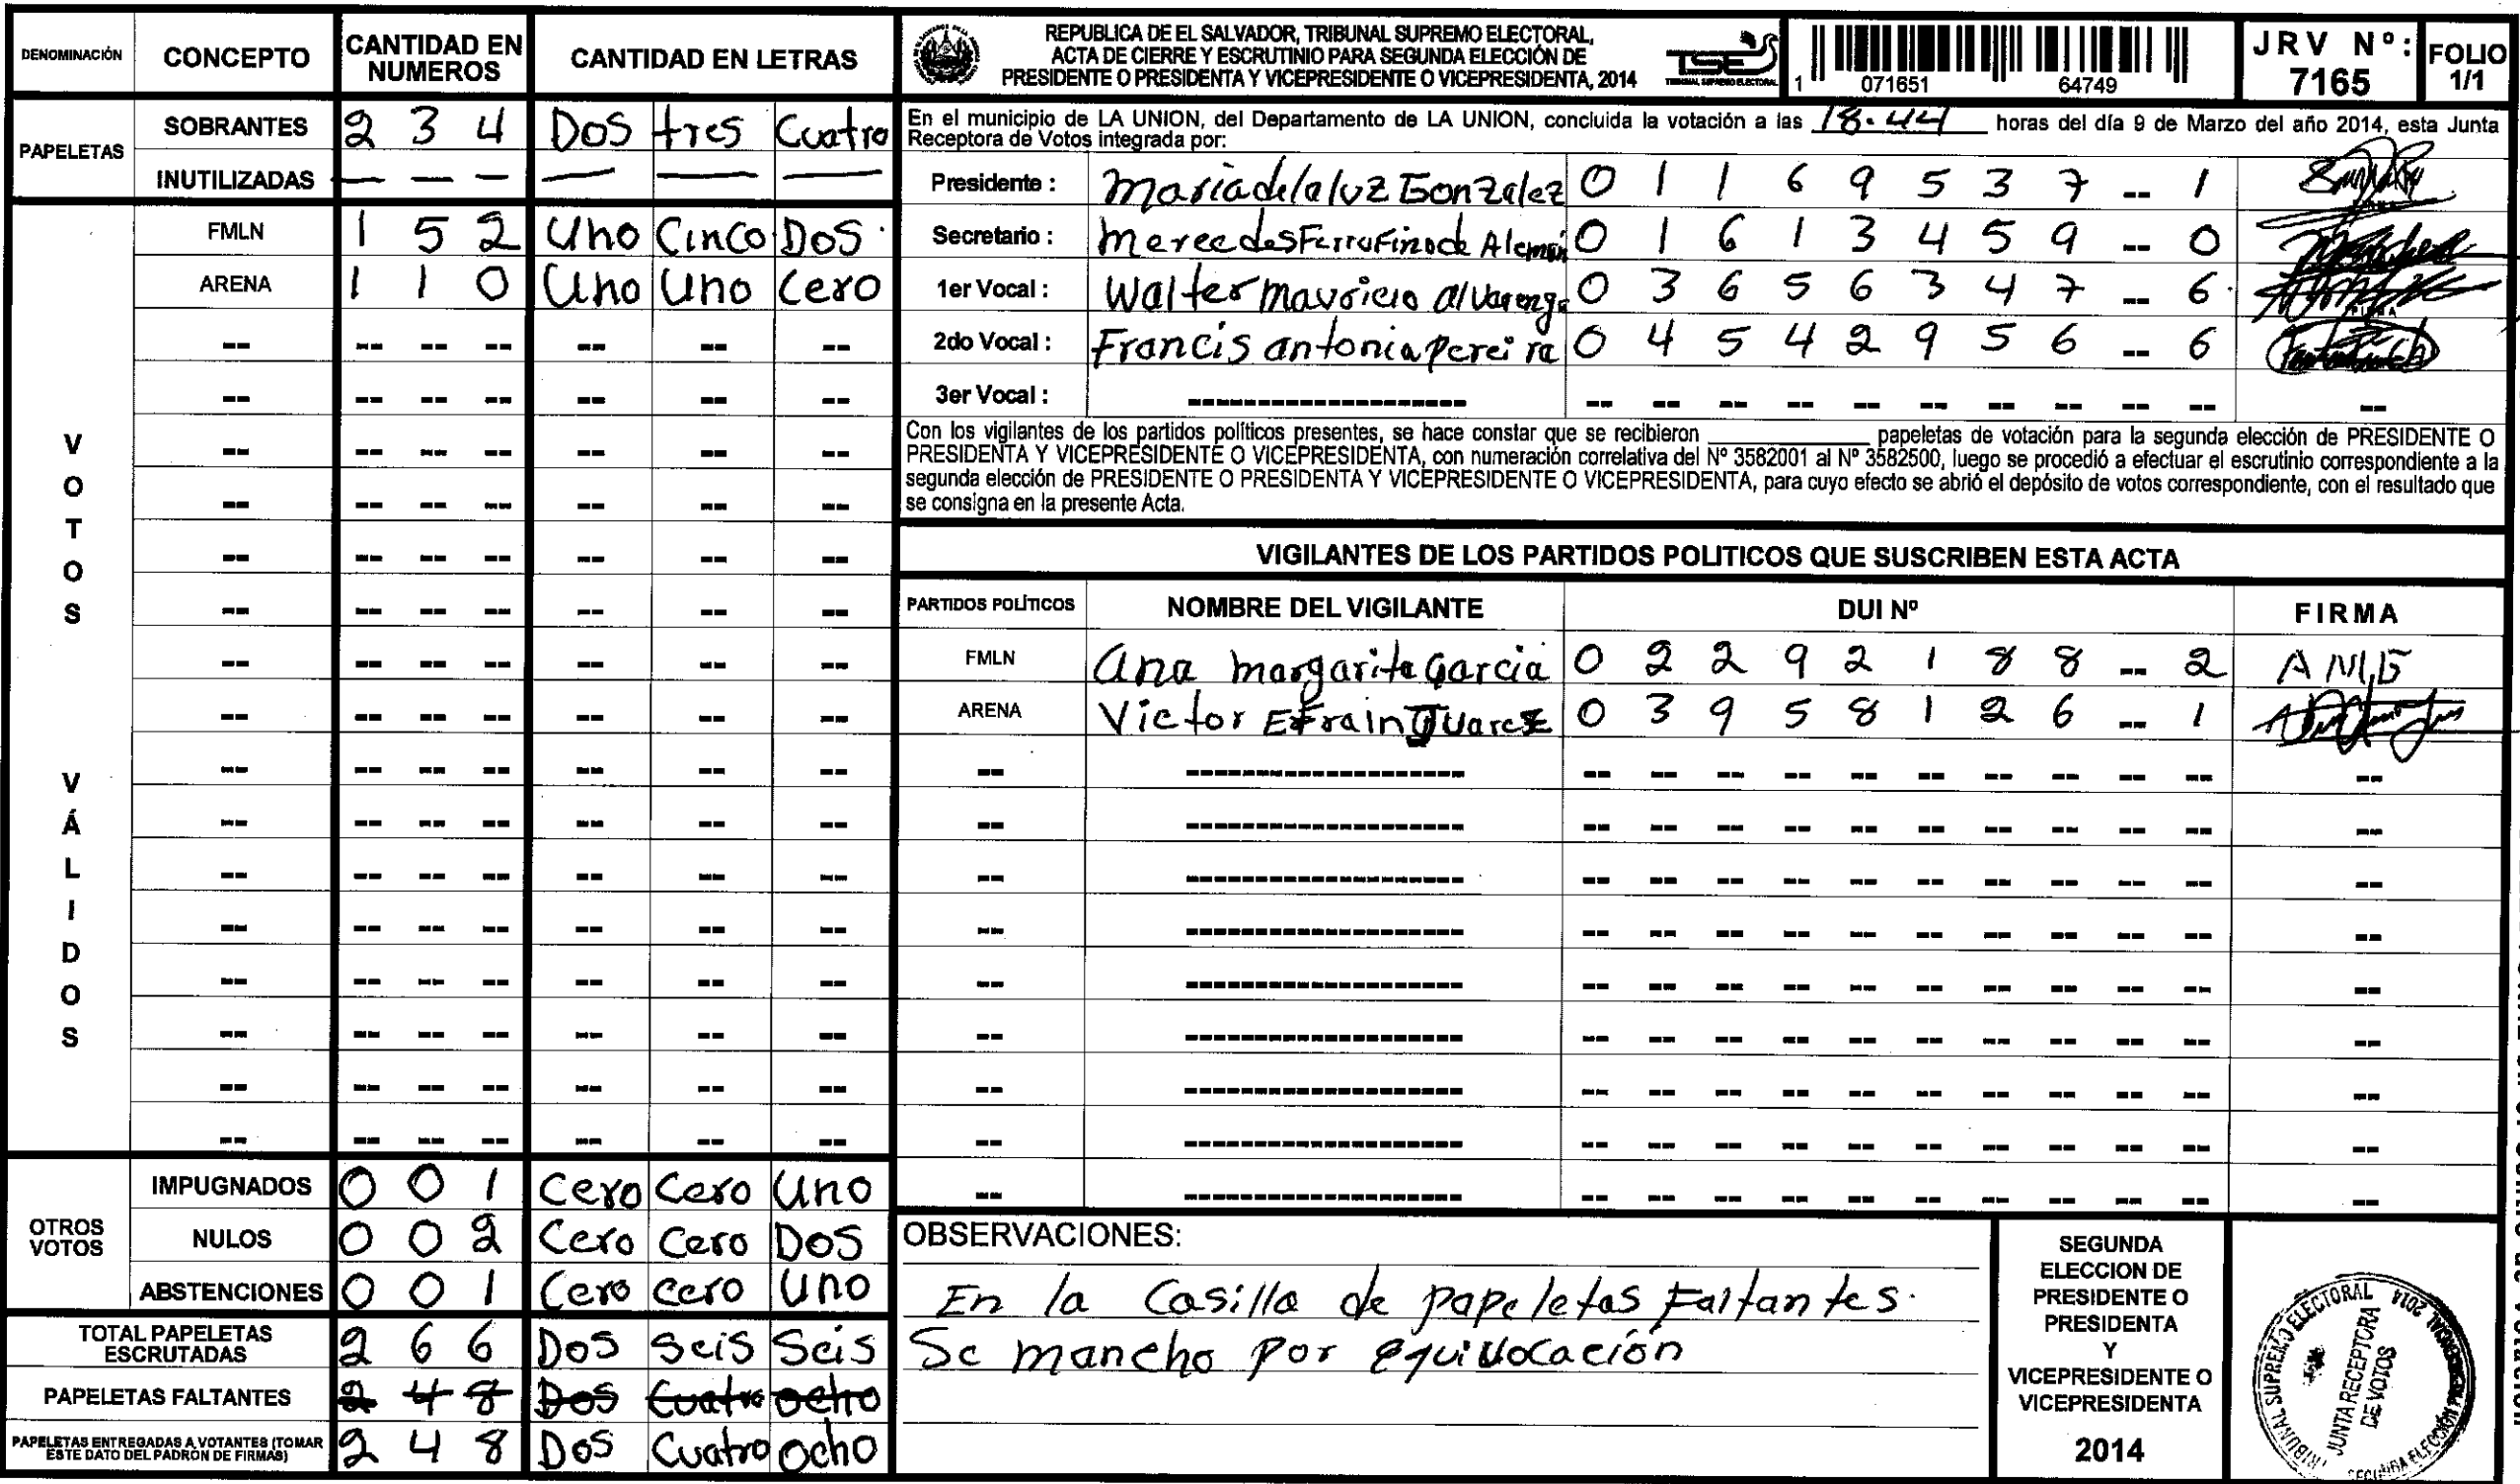 DENOMINACIÓN CONCEPTO CANTIDAD EN NUMEROS CANTIDAD EN LETRAS
PAPELETAS
SOBRANTES 2 3 4 Dos tres Cuatro
INUTILIZADAS — — — — — —
VOTOS VÁLIDOS
FMLN 1 5 2 Uno Cinco Dos
ARENA 1 1 0 Uno Uno Cero
OTROS VOTOS
IMPUGNADOS 0 0 1 Cero Cero Uno
NULOS 0 0 2 Cero Cero Dos
ABSTENCIONES 0 0 1 Cero cero Uno
TOTAL PAPELETAS ESCRUTADAS 2 6 6 Dos Seis Seis
PAPELETAS FALTANTES 2 4 8 Dos Cuatro ocho
PAPELETAS ENTREGADAS A VOTANTES (TOMAR ESTE DATO DEL PADRON DE FIRMAS) 2 4 8 Dos Cuatro Ocho
REPUBLICA DE EL SALVADOR, TRIBUNAL SUPREMO ELECTORAL,
ACTA DE CIERRE Y ESCRUTINIO PARA SEGUNDA ELECCIÓN DE
PRESIDENTE O PRESIDENTA Y VICEPRESIDENTE O VICEPRESIDENTA, 2014
TSE
TRIBUNAL SUPREMO ELECTORAL
1 071651 64749
JRV Nº: 7165
FOLIO 1/1
En el municipio de LA UNION, del Departamento de LA UNION, concluida la votación a las 18.44 horas del día 9 de Marzo del año 2014, esta Junta
Receptora de Votos integrada por:
Presidente : Maria de la luz Gonzalez 0 1 1 6 9 5 3 7 -- 1
Secretario : Mercedes Ferrufino de Alemán 0 1 6 1 3 4 5 9 -- 0
1er Vocal : Walter mauricio alvarenga 0 3 6 5 6 3 4 7 -- 6
2do Vocal : Francis antonia pereira 0 4 5 4 2 9 5 6 -- 6
3er Vocal :
Con los vigilantes de los partidos políticos presentes, se hace constar que se recibieron ________ papeletas de votación para la segunda elección de PRESIDENTE O
PRESIDENTA Y VICEPRESIDENTE O VICEPRESIDENTA, con numeración correlativa del Nº 3582001 al Nº 3582500, luego se procedió a efectuar el escrutinio correspondiente a la
segunda elección de PRESIDENTE O PRESIDENTA Y VICEPRESIDENTE O VICEPRESIDENTA, para cuyo efecto se abrió el depósito de votos correspondiente, con el resultado que
se consigna en la presente Acta.
VIGILANTES DE LOS PARTIDOS POLITICOS QUE SUSCRIBEN ESTA ACTA
PARTIDOS POLÍTICOS NOMBRE DEL VIGILANTE DUI Nº FIRMA
FMLN Ana margarita Garcia 0 2 2 9 2 1 8 8 -- 2 AMG
ARENA Victor Efrain Juarez 0 3 9 5 8 1 2 6 -- 1
OBSERVACIONES:
En la Casilla de papeletas Faltantes.
Se mancho por equivocación
SEGUNDA
ELECCION DE
PRESIDENTE O
PRESIDENTA
Y
VICEPRESIDENTE O
VICEPRESIDENTA
2014
TRIBUNAL SUPREMO ELECTORAL
JUNTA RECEPTORA
DE VOTOS